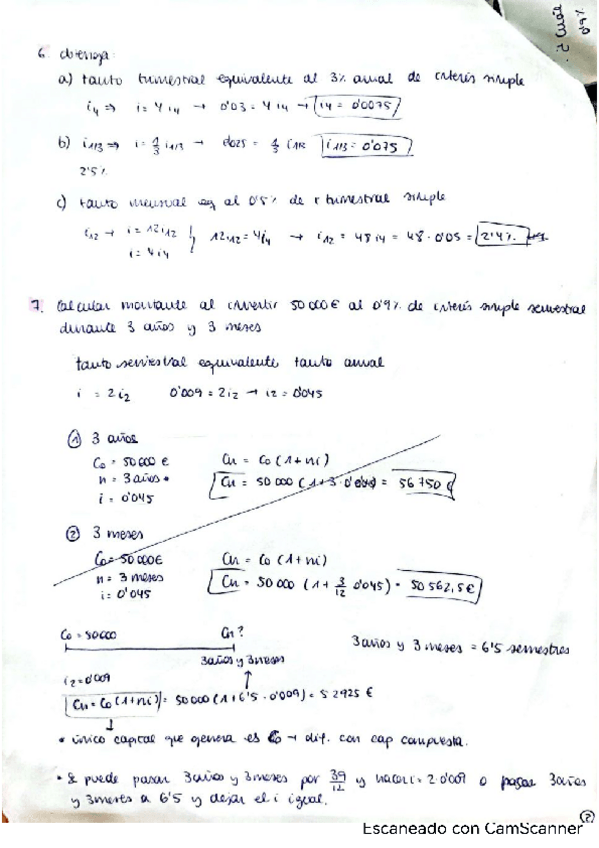 ¿ Cuál
0'9%
6. obtenga:
a) tanto trimestral equivalente al 3% anual de interés simple
i4 ⇒ i = 4 i4 → 0'03 = 4 i4 → i4 = 0'0075
b) i1/3 ⇒ i = 1/3 i1/3 → 0'025 = 1/3 i1/3 i1/3 = 0'075
2'5%
c) tanto mensual eq al 0'5% de i trimestral simple
i12 → i = 12 i12 } 12 i12 = 4 i4 → i12 = 48 i4 = 48 · 0'05 = 2'4%
i = 4 i4
7. Calcular montante al invertir 50 000 € al 0'9% de interés simple semestral
durante 3 años y 3 meses
tanto semestral equivalente tanto anual
i = 2 i2 0'009 = 2 i2 → i2 = 0'045
① 3 años
C0 = 50 000 € Cn = C0 (1 + ni)
n = 3 años Cn = 50 000 (1 + 3 · 0'045) = 56 750 €
i = 0'045
② 3 meses
C0 = 50 000 € Cn = C0 (1 + ni)
n = 3 meses Cn = 50 000 (1 + 3/12 0'045) = 50 562,5 €
i = 0'045
C0 = 50000 Cn ? 3 años y 3 meses = 6'5 semestres
3 años y 3 meses
i2 = 0'009
Cn = C0 (1 + ni) = 50 000 (1 + 6'5 · 0'009) = 52 925 €
• único capital que genera es C0 → dif. con cap compuesta.
• Se puede pasar 3 años y 3 meses por 39/12 y hacer i = 2 · 0'009 o pasar 3 años
y 3 meses a 6'5 y dejar el i igual.
②
Escaneado con CamScanner